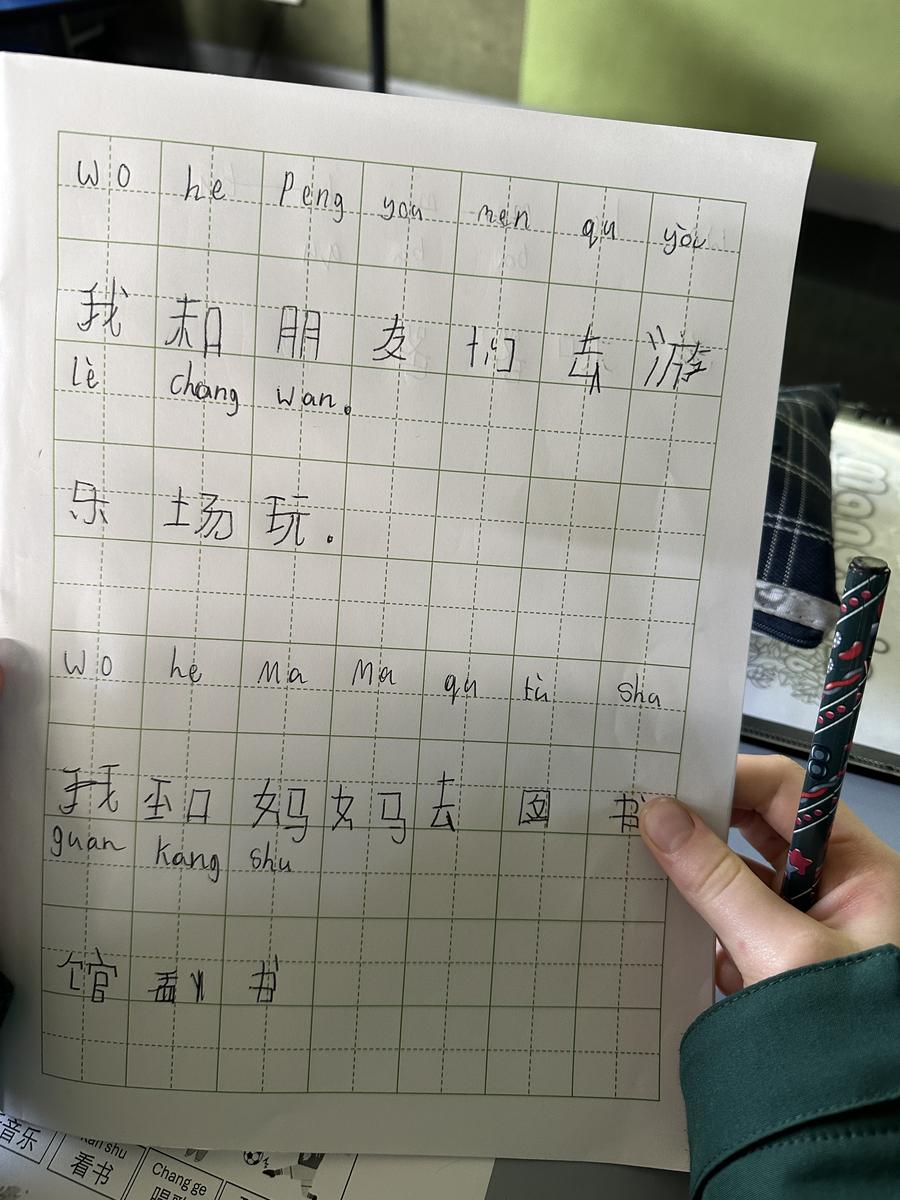 wo he Peng you men qu yòu
我 和 朋 友 们 去 游
lè chang wan。
乐 场 玩.
wo he Ma Ma qu tù shu
我 和 妈 妈 去 图 书
guan kang shu
馆 看 书
音乐
kan shu
看书
Chang ge
唱歌